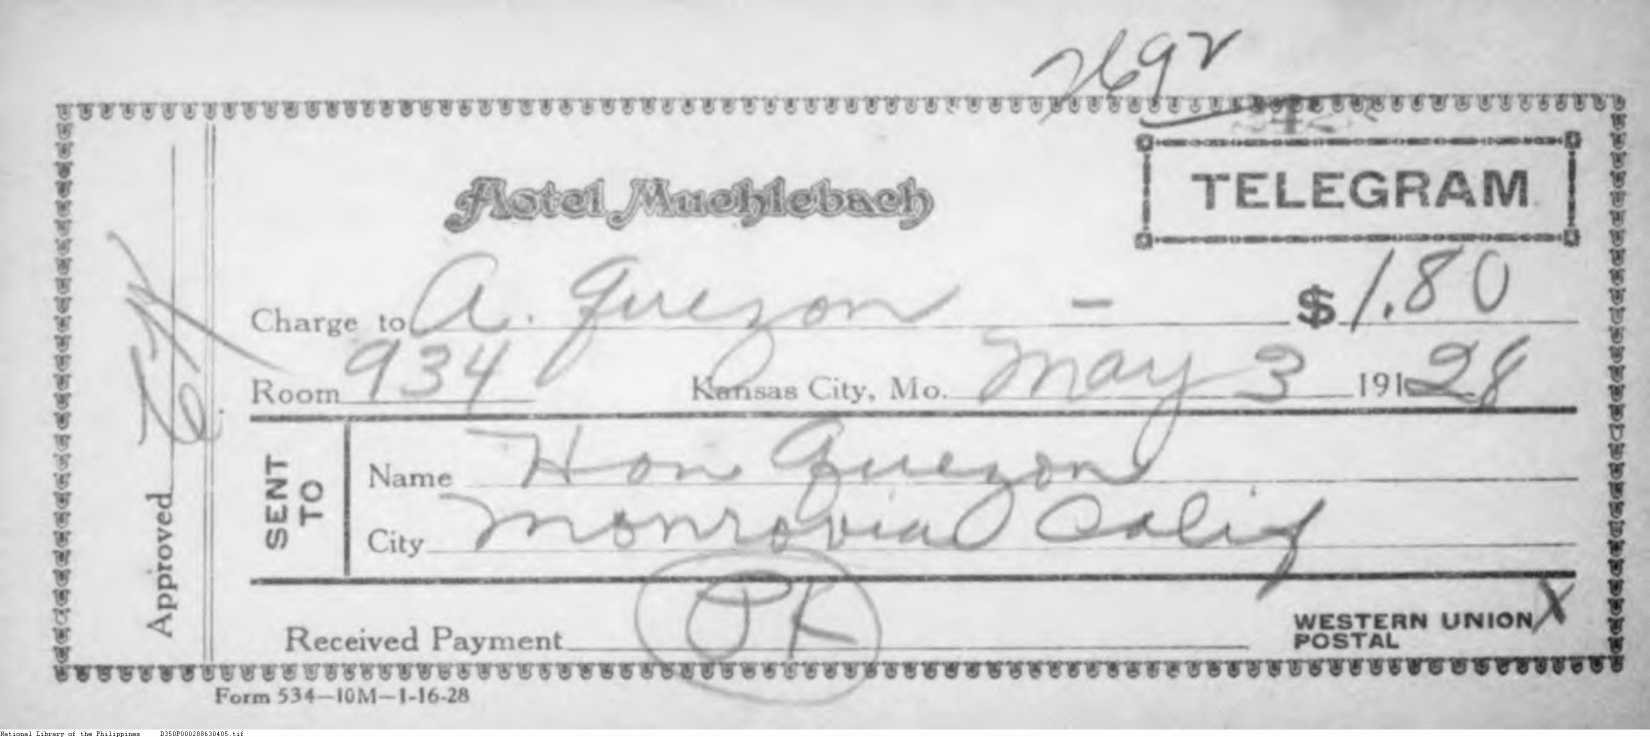 7692
Hotel Muehlebach
TELEGRAM
Charge to A. Quezon — $ 1.80
Room 934 Kansas City, Mo. May 3 191 28
SENT TO
Name Hon Quezon
City Monrovia Calif
Approved
Received Payment OK
WESTERN UNION X
POSTAL
Form 534—10M—1-16-28
National Library of the Philippines D350P000288630405.tif